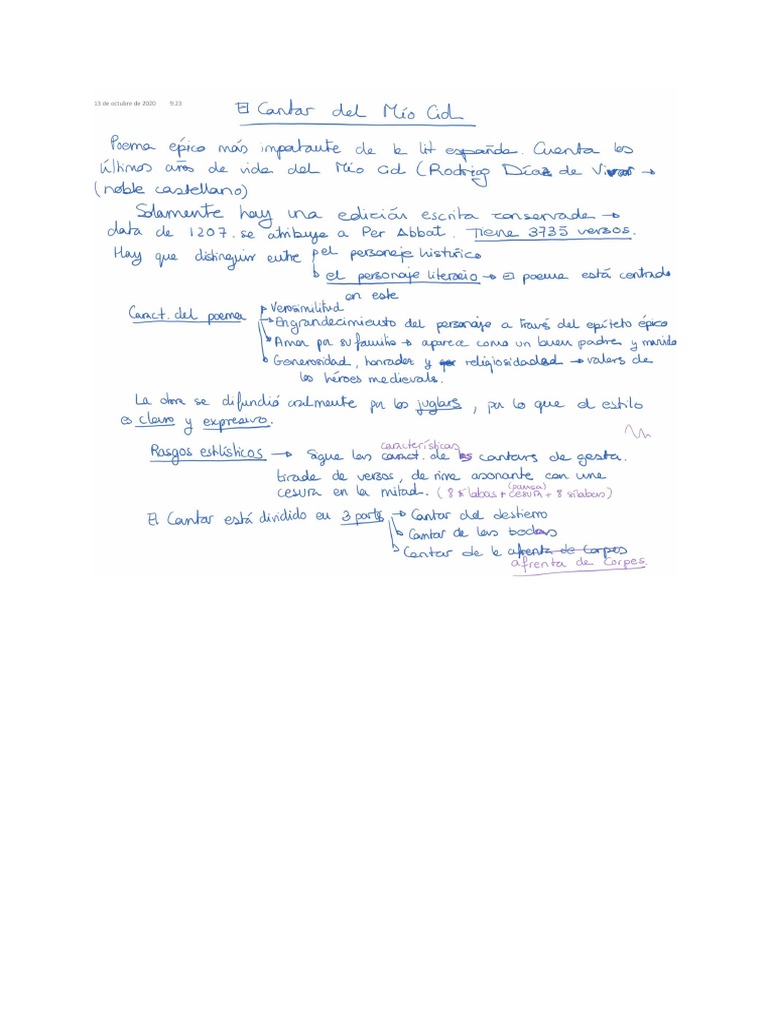 13 de octubre de 2020 9:23
El Cantar del Mío Cid
Poema épico más importante de la lit española. Cuenta los
últimos años de vida del Mío Cid (Rodrigo Díaz de Vivar →
(noble castellano)
Solamente hay una edición escrita conservada →
data de 1207. se atribuye a Per Abbat. Tiene 3735 versos.
Hay que distinguir entre el personaje histórico
el personaje literario → El poema está centrado
en este
Caract. del poema → Verosimilitud
→ Engrandecimiento del personaje a través del epíteto épico
→ Amor por su familia → aparece como un buen padre y marido
→ Generosidad, honradez y religiosidad → valores de
los héroes medievales.
La obra se difundió oralmente por los juglares, por lo que el estilo
es claro y expresivo.
características
Rasgos estilísticos → Sigue las caract. de los cantares de gesta.
tirada de versos, de rima asonante con una
cesura en la mitad. (8 sílabas + cesura + 8 sílabas)
(pausa)
El Cantar está dividido en 3 partes → Cantar del destierro
→ Cantar de las bodas
→ Cantar de la afrenta de Corpes
afrenta de Corpes.